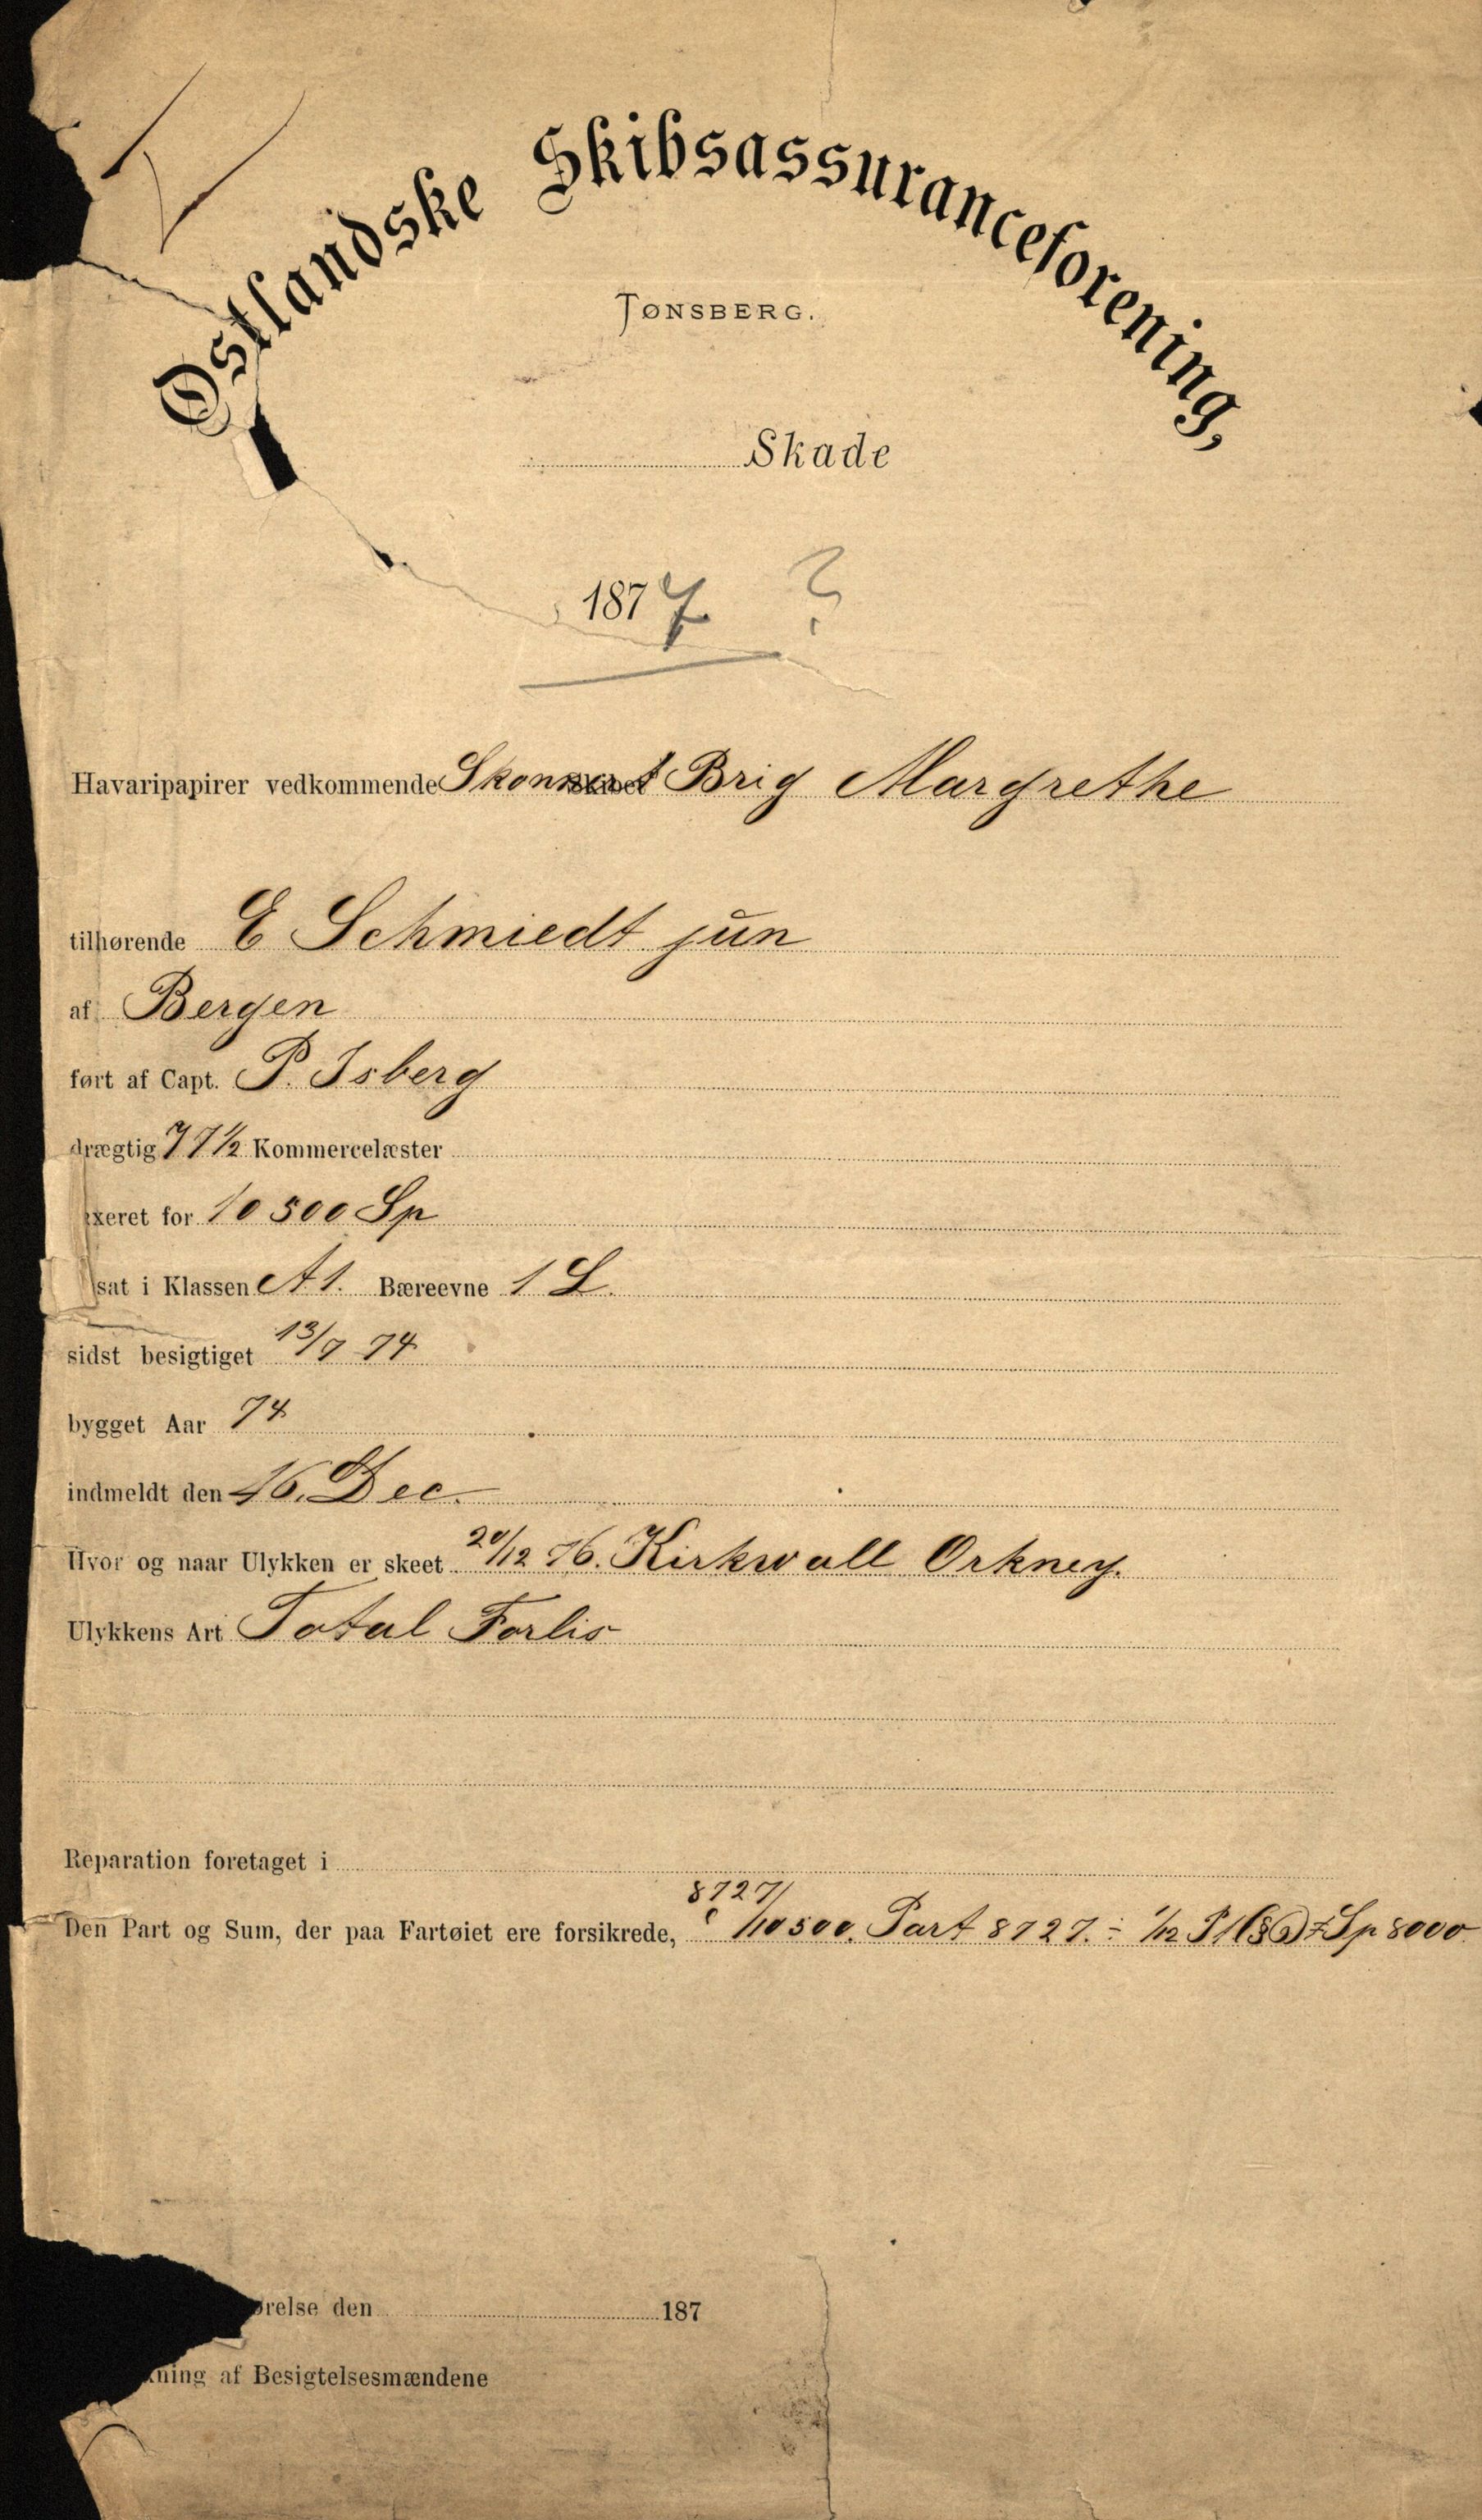 Østlandske Skibsassuranceforening,
TØNSBERG.
Skade
1877 ?
Havaripapirer vedkommende Skonnert Brig Margrethe
tilhørende E Schmiedt jun
af Bergen
ført af Capt. P. Isberg
drægtig 77½ Kommercelæster
xeret for 10500 Sp
sat i Klassen A1. Bæreevne 1 L.
sidst besigtiget 13/7 74
bygget Aar 74
indmeldt den 16. Dec.
Hvor og naar Ulykken er skeet 20/12 76. Kirkwall Orkney.
Ulykkens Art Total Forlis
Reparation foretaget i
Den Part og Sum, der paa Fartøiet ere forsikrede, 8727/10500. Part 8727. ÷ 1/12 (§6) Sp 8000
ørelse den 187
ning af Besigtelsesmændene